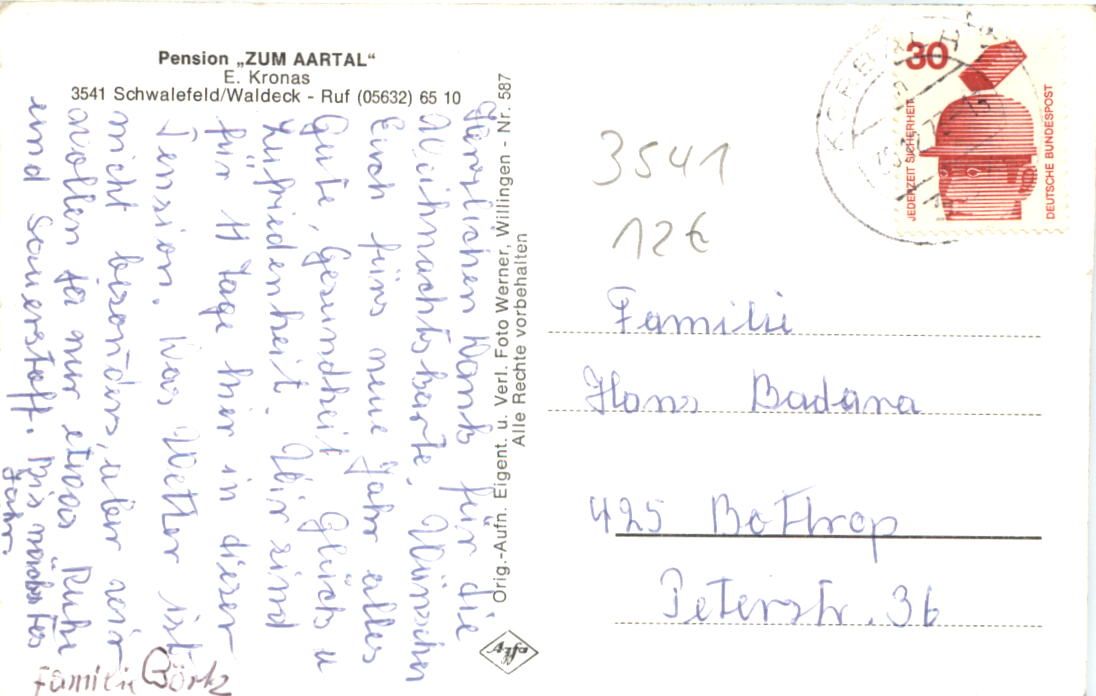 Pension „ZUM AARTAL“
E. Kronas
3541 Schwalefeld/Waldeck - Ruf (05632) 65 10
Herzlichen Dank für die
Weihnachtskarte. Wünschen
Euch fürs neue Jahr alles
Gute, Gesundheit Glück u
Zufriedenheit. Wir sind
für 11 Tage hier in dieser
Pension. Das Wetter ist
nicht besonders, aber wir
wollen ja nur etwas Ruhe
und Sauerstoff. Bis nächstes
Jahr.
Familie Börtz
Orig.-Aufn. Eigent. u. Verl. Foto Werner, Willingen - Nr. 587
Alle Rechte vorbehalten
Agfa
30
JEDERZEIT SICHERHEIT
DEUTSCHE BUNDESPOST
KORBACH
3541
12€
Familie
Hans Badana
425 Bottrop
Peterstr. 36